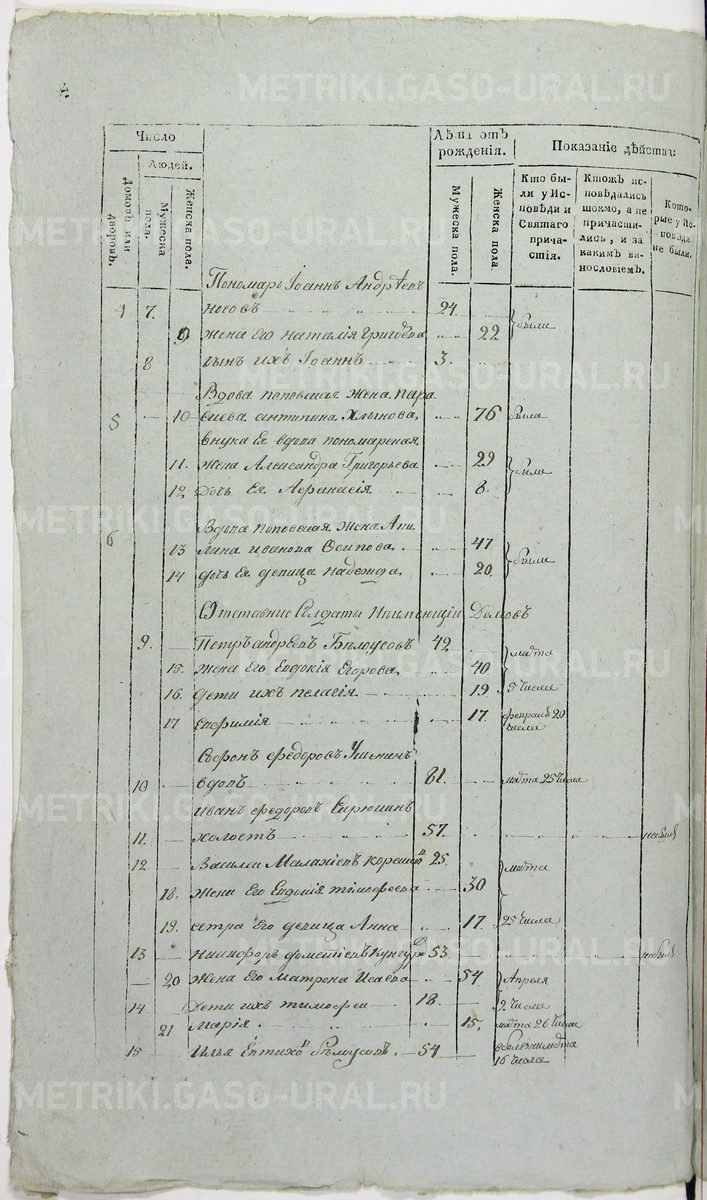 METRIKI.GASO-URAL.RU
Число
Людей.
Домовъ или дворовъ.
Мужеска пола.
Женска пола.
Лѣта отъ рождения.
Мужеска пола.
Женска пола.
Показаніе дѣйства:
Кто бы-
ли у Ис-
повѣди и
Святаго
прича-
стія.
Ктожъ ис-
повѣдались
токмо, а не
причасти-
лись, и за
какимъ ви-
нословіемъ.
Кото-
рые у Ис-
повѣди
не были.
Пономарь Іоаннъ Андрѣевъ
4 7. Носовъ 24
9 жена Его наталія Григорьева 22 были
8 сынъ ихъ Іоаннъ 3.
Вдова поповская жена пара
5 10 скева антипина Хлынова 76 была
внука Ея вдова пономарская
11. жена Александра Григорьева 29
12. Дочь Ея Афанасія 8. были
Вдова поповская жена Аки
6 13 лина иванова Осипова. 47
14 дочь Ея девица надежда. 20. были
Отставние Солдаты Неимеющіи Домовъ
9. Петръ андреевъ Бѣлоусовъ 42 марта
15. жена Его Евдокія Егорова 40
16. дети ихъ пелагія. 19 5 числа
17 Евфимія 17. февраля 20 числа
Софронъ федоровъ
10 вдовъ 81. марта 25 числа
иванъ федоровъ
11. холостъ 57. небылъ
12. Василій 25 марта
18. жена Его Евдокія тимофеева 30
19. сестра Его девица Анна 17. 25 числа
13 Никифоръ 53 небылъ
20 жена Его матрона Исаева 54. Апреля
14 дети ихъ тимофей 18. 2 числа
21 марія. 15. марта 26 числа
15 Илья Бѣлоусовъ. 54 марта 16 числа
METRIKI.GASO-URAL.RU